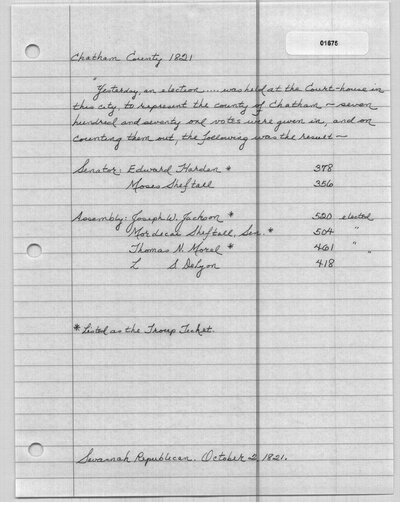 01676
Chatham County 1821
"Yesterday, an election ..... was held at the Court-house in
this city, to represent the county of Chatham — seven
hundred and seventy one votes were given in, and on
counting them out, the following was the result —
Senator: Edward Harden * 378
Moses Sheftall 356
Assembly: Joseph W. Jackson * 520 elected
Mordecai Sheftall, Sen. * 504 "
Thomas N. Morel * 461 " "
L S. DeLyon 418
* Listed as the Troup Ticket.
Savannah Republican. October 2, 1821.